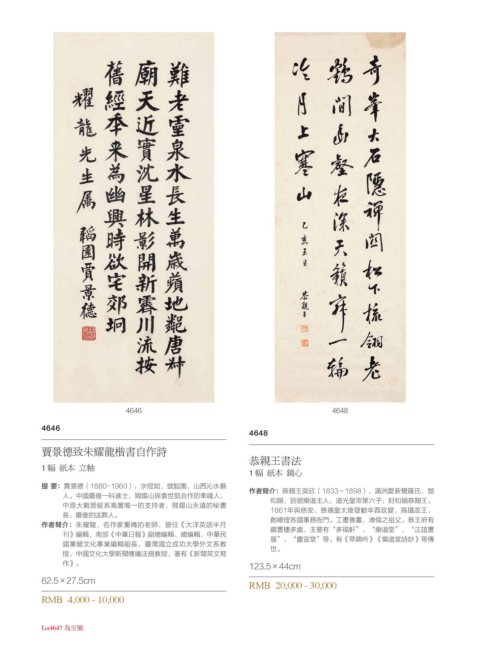 難老靈泉水長生萬歲蘋地\ue000唐叔
廟天近實沈星林影開新霽川流按
舊經本來為幽興時欲宅郊坰
耀龍先生属 韜園賈景德
奇峯大石隱禪関松下楼翎老
鶴間幽壑夜深天籟寂一輪
冷月上寒山
乙亥五月 恭親王
4646
4648
4646
賈景德致朱耀龍楷書自作詩
1幅 紙本 立軸
提 要：賈景德（1880-1960），字煜如，號韜園，山西沁水縣
人。中國最後一科進士，閻錫山與當世凱合作的牽綫人，
中原大戰晉綏系高層唯一的支持者，閻錫山永遠的秘書
長，最後的送葬人。
作者簡介：朱耀龍，名作家董橋的老師，曾任《大洋英語半月
刊》編輯，南部《中華日報》副總編輯、總編輯，中華民
國董營文化事業編輯組長，臺灣國立成功大學外文系教
授，中國文化大學新聞傳播法規教授，著有《新聞英文寫
作》。
62.5 × 27.5cm
RMB 4,000 - 10,000
4648
恭親王書法
1幅 紙本 鏡心
作者簡介：恭親王奕欣（1833－1898），滿洲愛新覺羅氏，號
和頤，別號樂道主人，道光皇帝第六子，封和碩恭親王。
1861年與慈安、慈禧皇太後發動辛酉政變，爲議政王，
創總理各國事務衙門。工書善畫，溥偉之祖父。恭王府有
藏書樓多處，主要有“多福軒”、“樂道堂”、“正誼書
屋”、“慶宜堂”等。有《萃錦吟》《樂道堂詩鈔》等傳
世。
123.5 × 44cm
RMB 20,000 - 30,000
Lot4647 為空號